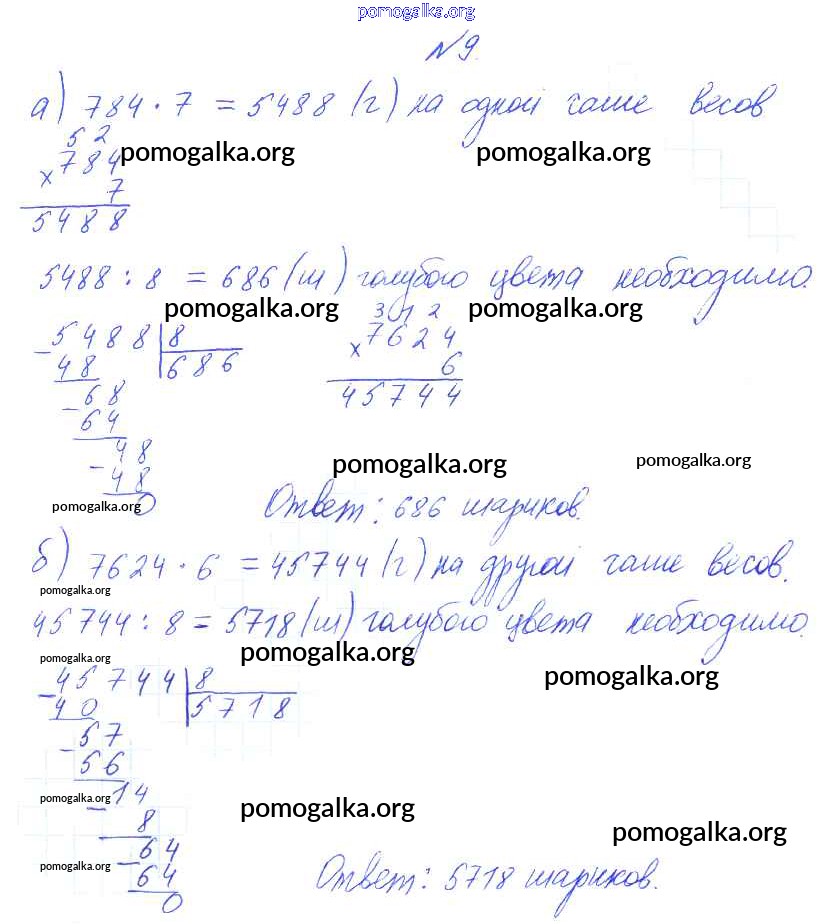 pomogalka.org
№9.
а) 784 · 7 = 5488 (г) на одной чаше весов
5 2
× 784 pomogalka.org pomogalka.org
7
5488
5488 : 8 = 686 (ш) голубого цвета необходимо.
pomogalka.org pomogalka.org
3 1 2
- 5488 | 8 × 7624
48 | 686 6
- 68 45744
64
- 48 pomogalka.org pomogalka.org
48
pomogalka.org 0 Ответ: 686 шариков.
б) 7624 · 6 = 45744 (г) на другой чаше весов.
pomogalka.org
45744 : 8 = 5718 (ш) голубого цвета необходимо.
pomogalka.org pomogalka.org pomogalka.org
- 45744 | 8
40 | 5718
- 57
56
pomogalka.org - 14 pomogalka.org
8 pomogalka.org
- 64
pomogalka.org 64 Ответ: 5718 шариков.
0